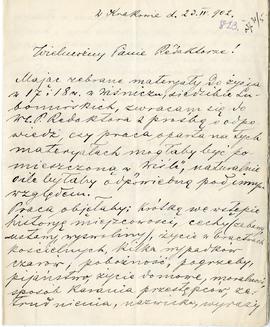 w Krakowie d. 23. IV. 902.
Wielmożny Panie Redaktorze!
Mając zebrane materyały do życia
w 17 i 18 w. w Wiśniczu, siedzibie Lu-
bomirskich, zwracam się do
W. P. Redaktora z prośbą o odpo
wiedź, czy praca oparta na tych
materyałach mogłaby być po
mieszczona w Wiśle, naturalnie
o ile byłaby odpowiedną pod innym
względem.
Praca objęłaby: krótką we wstępie
historyę miejscowości, cechy
ustawy, wyzwoliny, życie w bractwach
kościelnych, kilka wypadków
czarów, pobożność, pogrzeby,
pijaństwo, życie domowe, moralność
sposób karania przestępców, za-
trudnienia, nazwiska, wyrazy